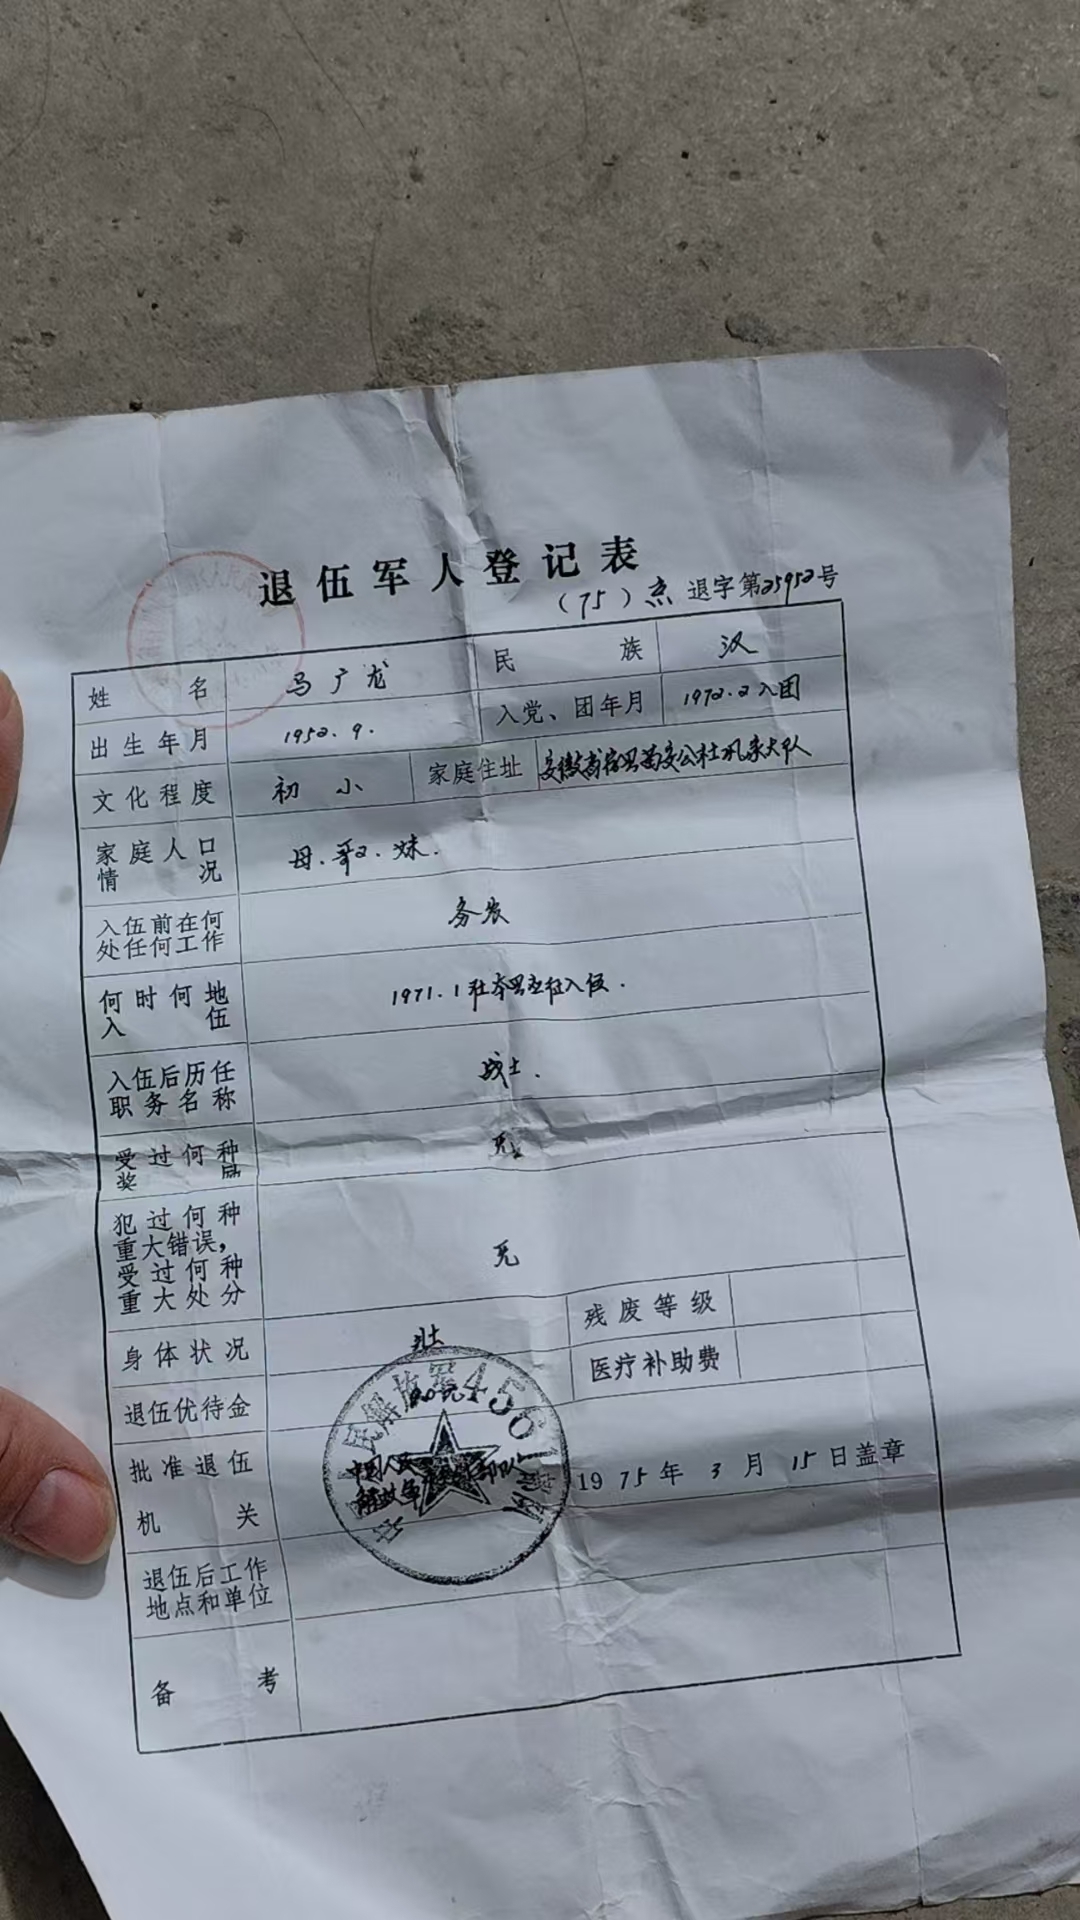 退伍军人登记表
（75）京 退字第25952号
姓名 马广龙 民族 汉
出生年月 1952.9. 入党、团年月 1972.2入团
文化程度 初小 家庭住址 安徽省宿县 公社 大队
家庭人口情况 母.哥2.妹.
入伍前在何处任何工作 务农
何时何地入伍 1971.1在本县应征入伍.
入伍后历任职务名称 战士.
受过何种奖励 无
犯过何种重大错误，受过何种重大处分 无
身体状况 壮 残废等级
退伍优待金 医疗补助费
批准退伍机关 中国人民解放军 部队 1975年3月15日盖章
民解放军4561
退伍后工作地点和单位
备考